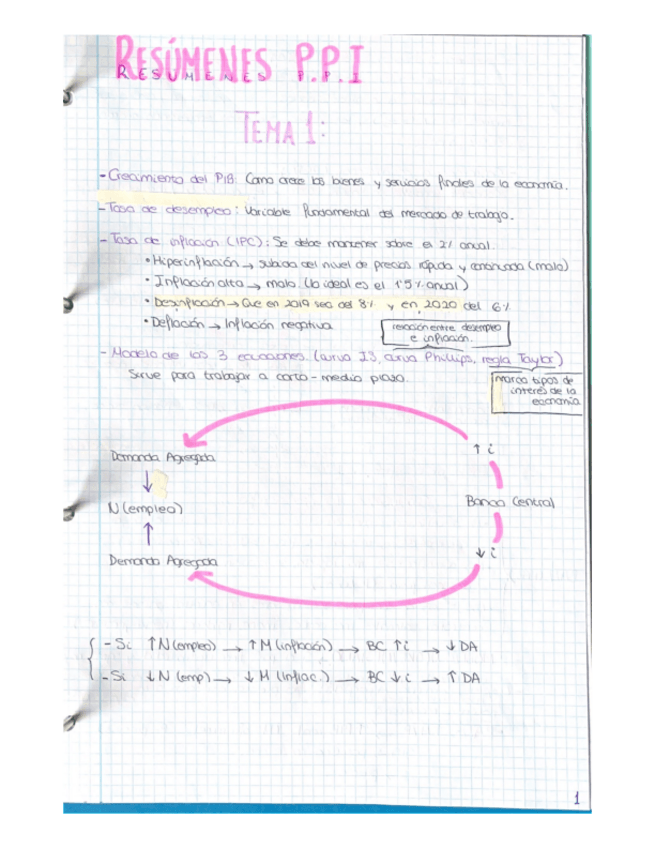 RESÚMENES P.P.I
RESÚMENES P.P.I
TEMA 1:
- Crecimiento del PIB: Como crece los bienes y servicios finales de la economía.
- Tasa de desempleo: Variable fundamental del mercado de trabajo.
- Tasa de inflación (IPC): Se debe mantener sobre el 2% anual.
• Hiperinflación → subida del nivel de precios rápida y continuada (malo)
• Inflación alta → malo (lo ideal es el 1'5% anual)
• Desinflación → Que en 2019 sea del 8% y en 2020 del 6%
• Deflación → Inflación negativa
relación entre desempleo
e inflación.
- Modelo de las 3 ecuaciones. (curva IS, curva Phillips, regla Taylor)
Sirve para trabajar a corto-medio plazo.
marca tipos de
interés de la
economía
↑ i
Demanda Agregada
↓
N (empleo)
Banco Central
↑
↓ i
Demanda Agregada
- Si ↑ N (empleo) → ↑ M (inflación) → BC ↑ i → ↓ DA
- Si ↓ N (emp) → ↓ M (inflac.) → BC ↓ i → ↑ DA
1